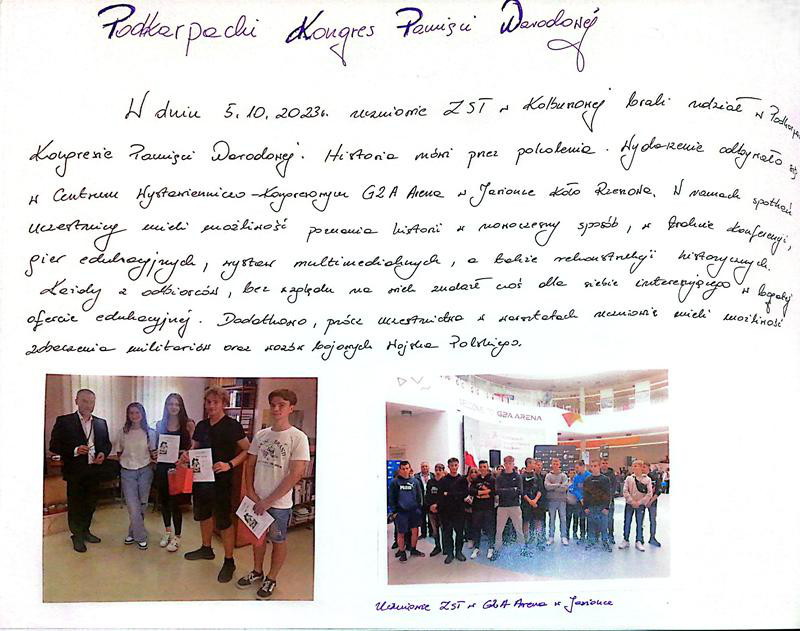 Podkarpacki Kongres Pamięci Narodowej
W dniu 5.10.2023r. uczniowie ZST w Kolbuszowej brali udział w Podkarpackim
Kongresie Pamięci Narodowej. Historia mówi przez pokolenia. Wydarzenie odbywało się
w Centrum Wystawienniczo-Kongresowym G2A Arena w Jasionce koło Rzeszowa. W ramach spotkań
uczestnicy mieli możliwość poznania historii w nowoczesny sposób, w trakcie konferencji,
gier edukacyjnych, wystaw multimedialnych, a także rekonstrukcji historycznych.
Każdy z odbiorców, bez względu na wiek znalazł coś dla siebie interesującego w bogatej
ofercie edukacyjnej. Dodatkowo, prócz uczestnictwa w warsztatach uczniowie mieli możliwość
zobaczenia militariów oraz wozów bojowych Wojska Polskiego.
G2A ARENA
Uczniowie ZST w G2A Arena w Jasionce